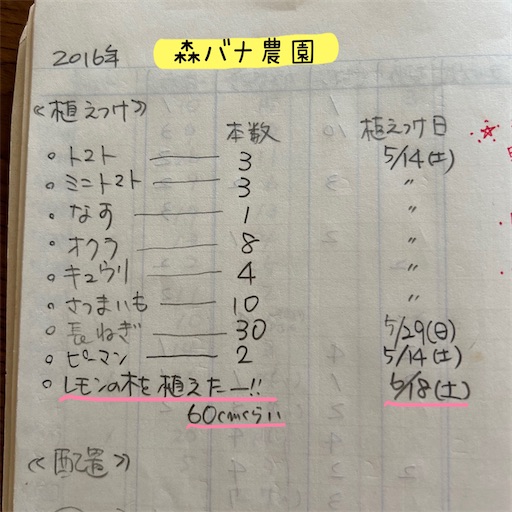 2016年 森バナ農園
≪植えつけ≫
本数 植えつけ日
○ トマト ─── 3 5/14(土)
○ ミニトマト ─── 3 〃
○ なす ─── 1 〃
○ オクラ ─── 8 〃
○ キュウリ ─── 4 〃
○ さつまいも ─── 10 〃
○ 長ねぎ ─── 30 5/29(日)
○ ピーマン ─── 2 5/14(土)
○ レモンの木を植えたー!! 6/18(土)
60cmくらい
≪配置≫